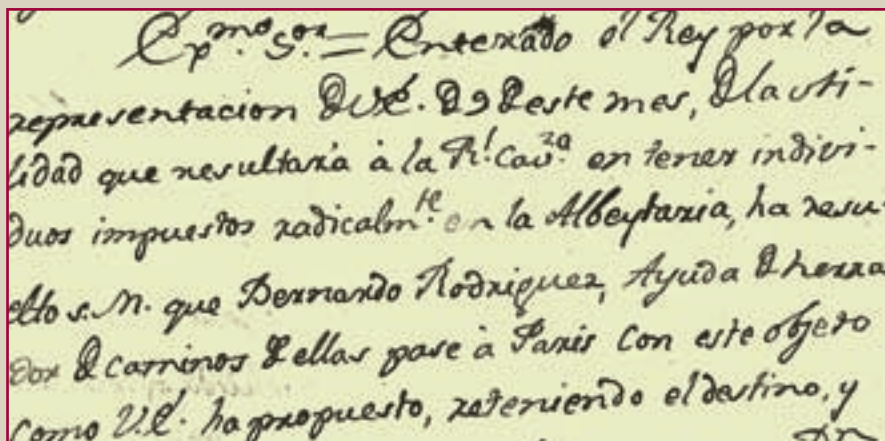 Exmo. Sor. = Enterado el Rey por la
representacion de V.E. de 9 de este mes, de la uti-
lidad que resultaria à la Rl. Cavza. en tener indivi-
duos impuestos radicalmte. en la Albeytaria, ha resu-
elto S.M. que Bernardo Rodriguez, Ayuda de herra
dor de caminos de ellas pase à Paris con este objeto
como V.E. ha propuesto, reteniendo el destino, y